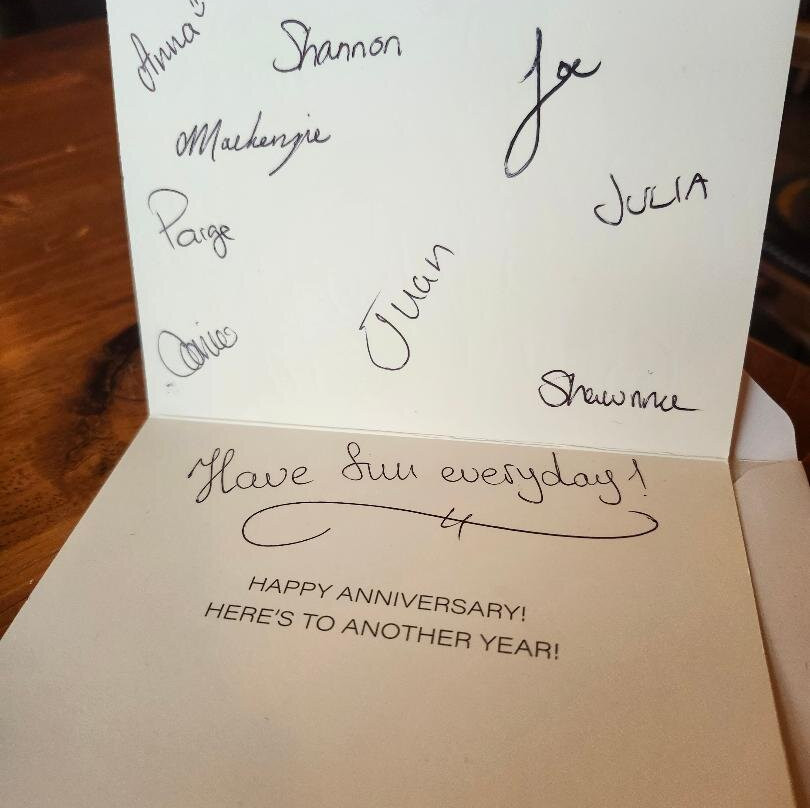 Anna
Shannon
Joe
Mackenzie
JULIA
Paige
Juan
Shawnna
Have fun everyday!
HAPPY ANNIVERSARY!
HERE'S TO ANOTHER YEAR!